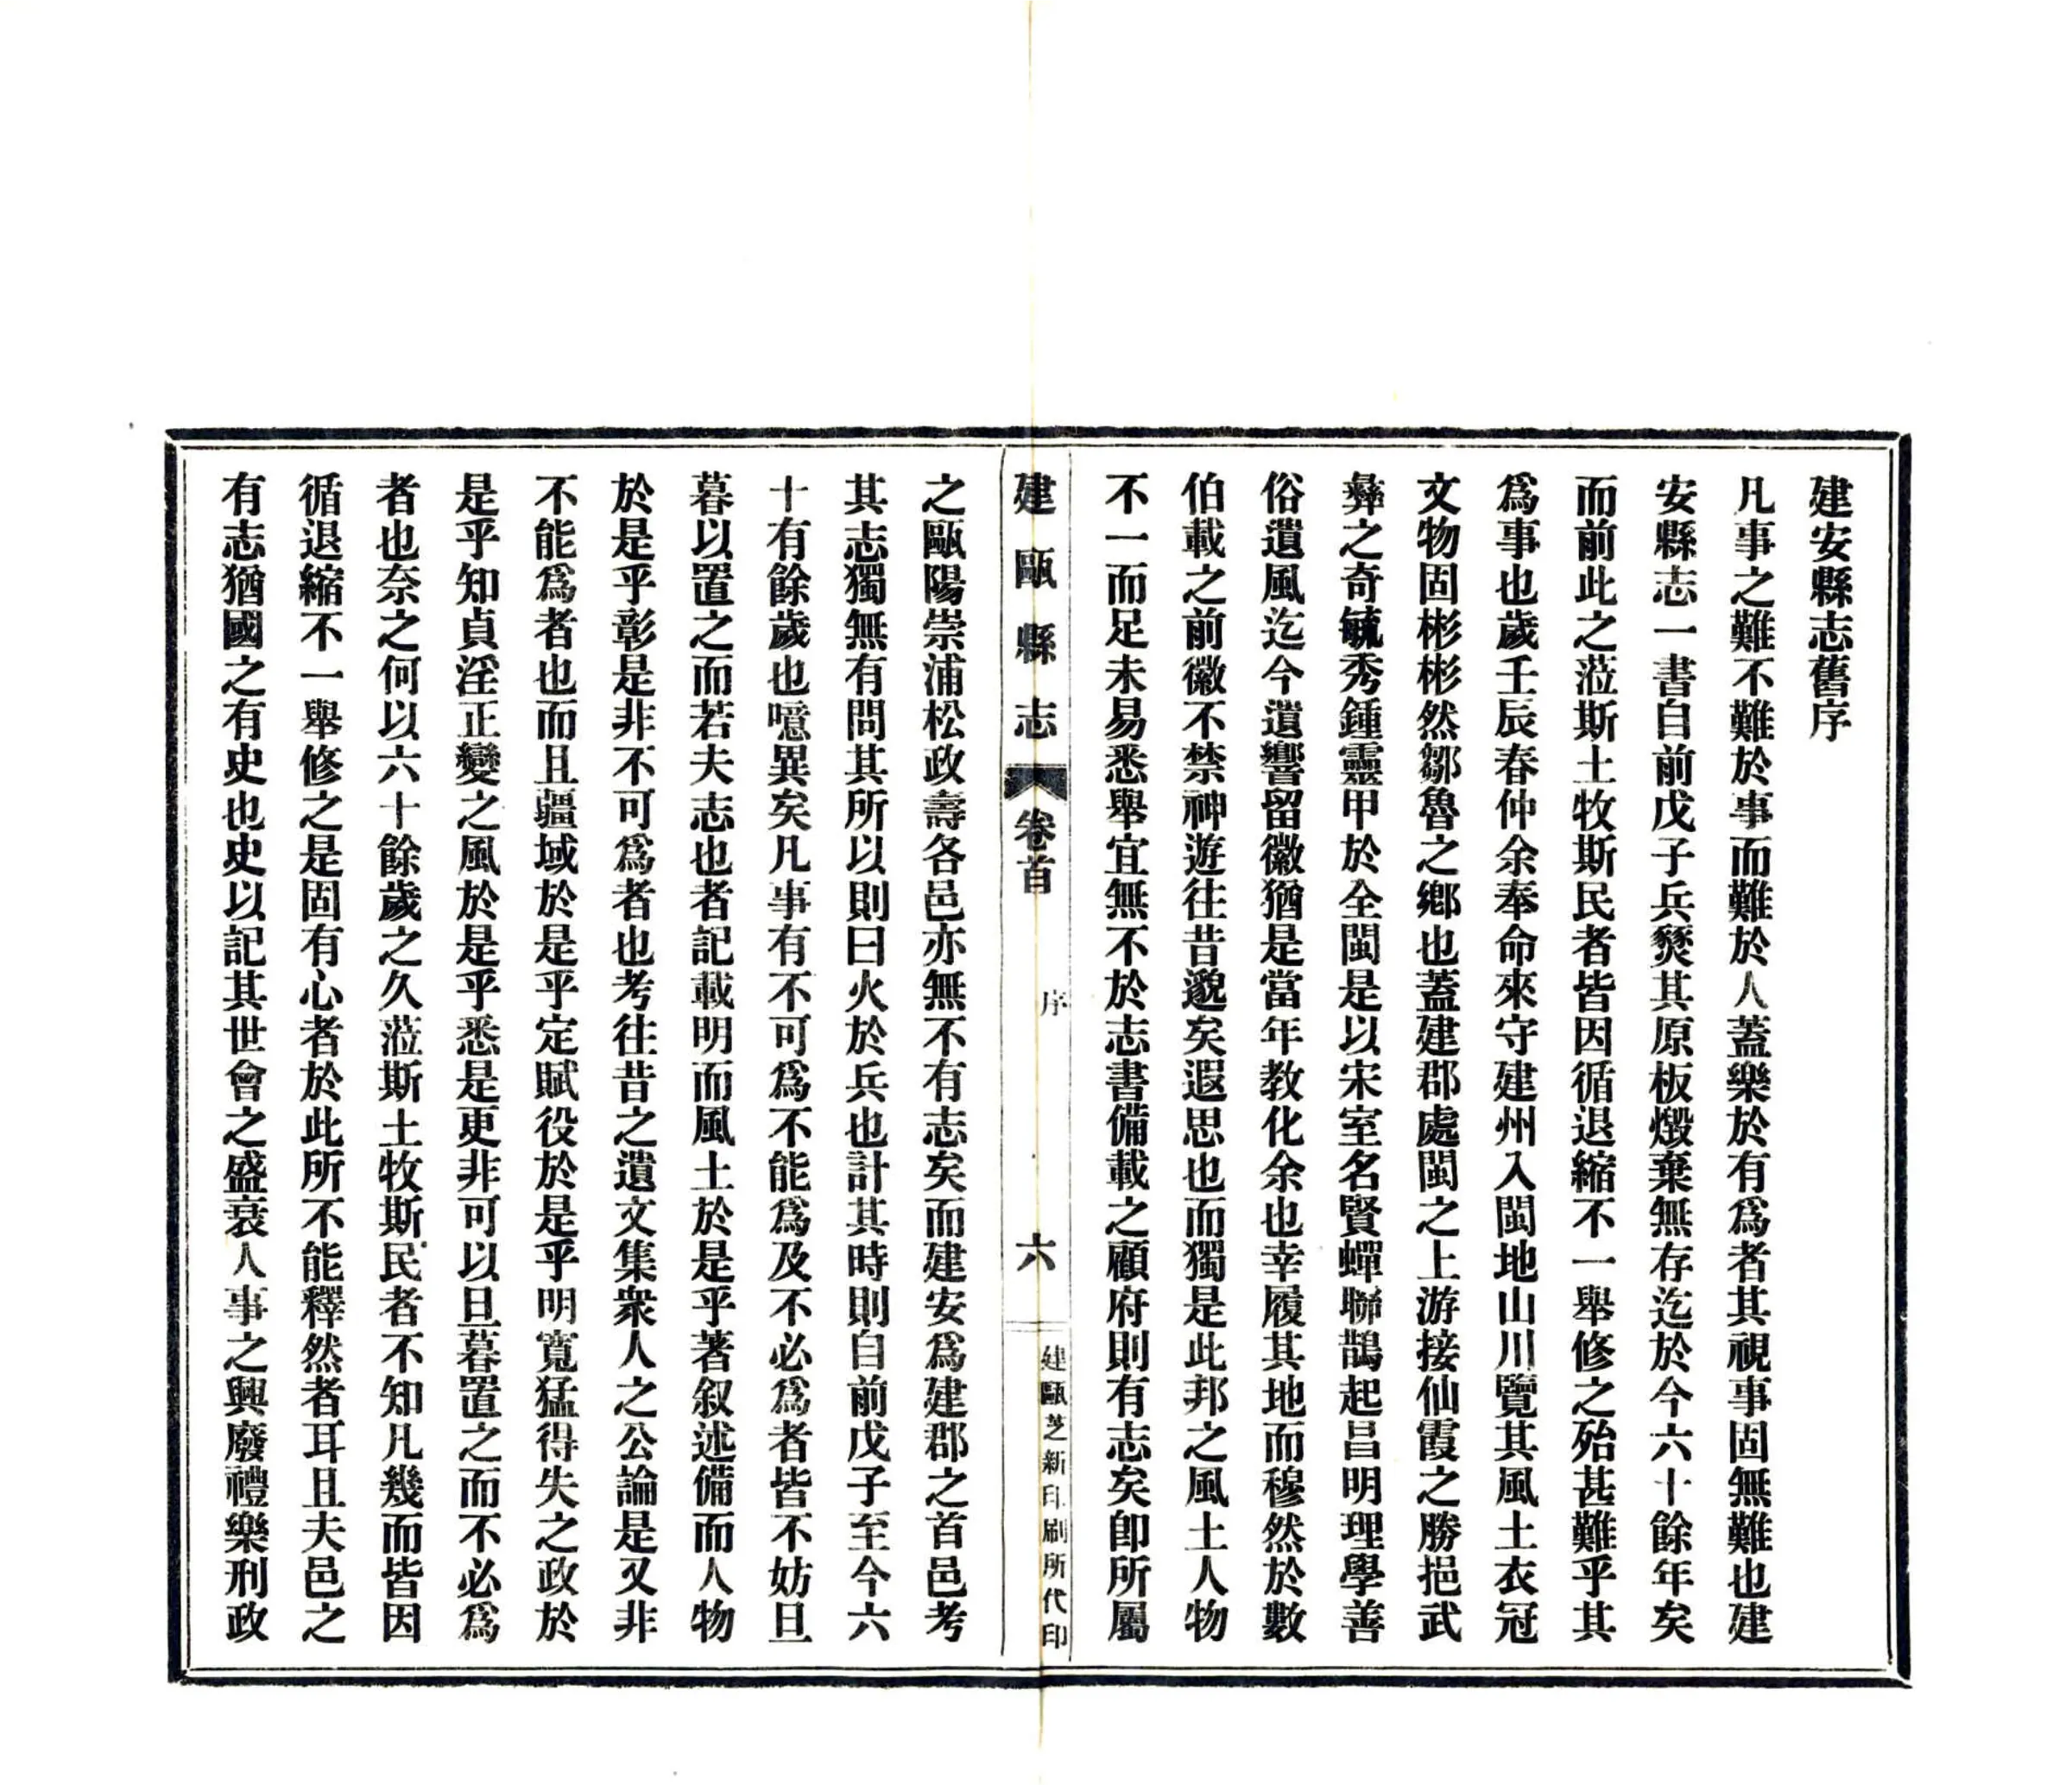 建安縣志舊序
凡事之難不難於事而難於人蓋樂於有爲者其視事固無難也建
安縣志一書自前戊子兵燹其原板燬棄無存迄於今六十餘年矣
而前此之蒞斯土牧斯民者皆因循退縮不一舉修之殆甚難乎其
爲事也歲壬辰春仲余奉命來守建州入閩地山川覽其風土衣冠
文物固彬彬然鄒魯之鄉也蓋建郡處閩之上游接仙霞之勝挹武
彝之奇毓秀鍾靈甲於全閩是以宋室名賢蟬聯鵲起昌明理學善
俗遺風迄今遺響留徽猶是當年教化余也幸履其地而穆然於數
伯載之前徽不禁神遊往昔邈矣遐思也而獨是此邦之風土人物
不一而足未易悉舉宜無不於志書備載之顧府則有志矣卽所屬
建甌縣志 卷首 序 六 建甌芝新印刷所代印
之甌陽崇浦松政壽各邑亦無不有志矣而建安爲建郡之首邑考
其志獨無有問其所以則曰火於兵也計其時則自前戊子至今六
十有餘歲也噫異矣凡事有不可爲不能爲及不必爲者皆不妨旦
暮以置之而若夫志也者記載明而風土於是乎著叙述備而人物
於是乎彰是非不可爲者也考往昔之遺文集衆人之公論是又非
不能爲者也而且疆域於是乎定賦役於是乎明寬猛得失之政於
是乎知貞淫正變之風於是乎悉是更非可以旦暮置之而不必爲
者也奈之何以六十餘歲之久蒞斯土牧斯民者不知凡幾而皆因
循退縮不一舉修之是固有心者於此所不能釋然者耳且夫邑之
有志猶國之有史也史以記其世會之盛衰人事之興廢禮樂刑政